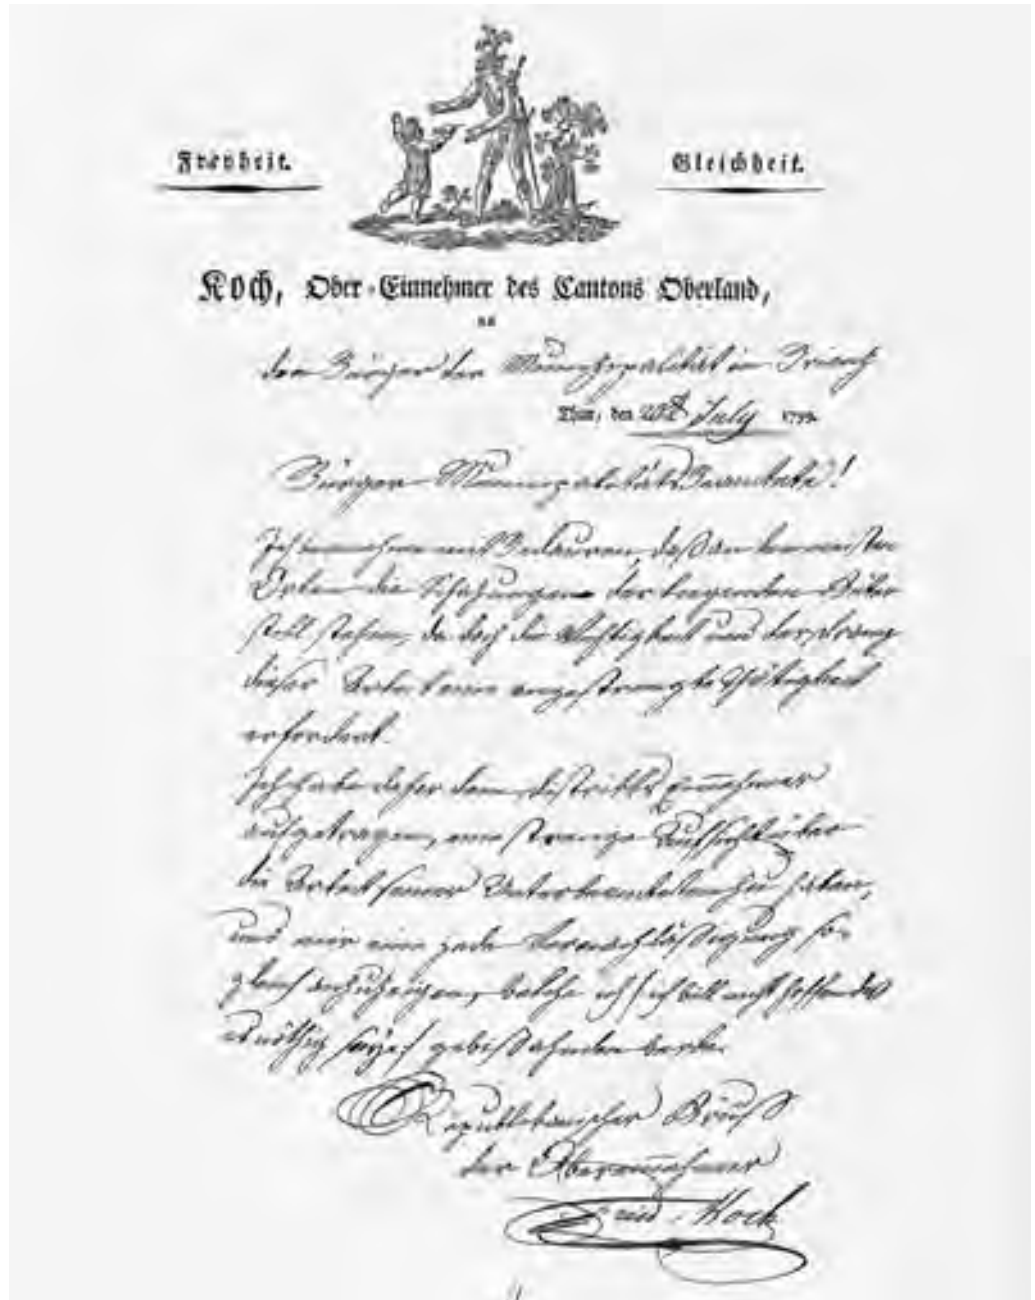 Freyheit.
Gleichheit.
Koch, Ober-Einnehmer des Cantons Oberland,
an
den Bürger der Municipalität in Brienz
Thun, den 20t July 1799.
Bürger Municipalitäts Beamtete!
Ich vernehme mit Bedauren, daß an den meisten
Orten die Schazungen der liegenden Güter
still stehen, da doch die Wichtigkeit und der Drang
dieser Arbeit eine angestrengte Thätigkeit
erfordert.
Ich habe daher dem Distrikts Einnehmer
aufgetragen, eine strenge Aufsicht über
die Arbeit seiner Unterbeamteten zu haben,
und mir eine jede Vernachläßigung so-
gleich anzuzeigen, welche ich (ich will nicht hoffen das
es nöthig seye) gewiß ahnden werde.
Republikanischer Gruß
der Obereinnehmer
Koch